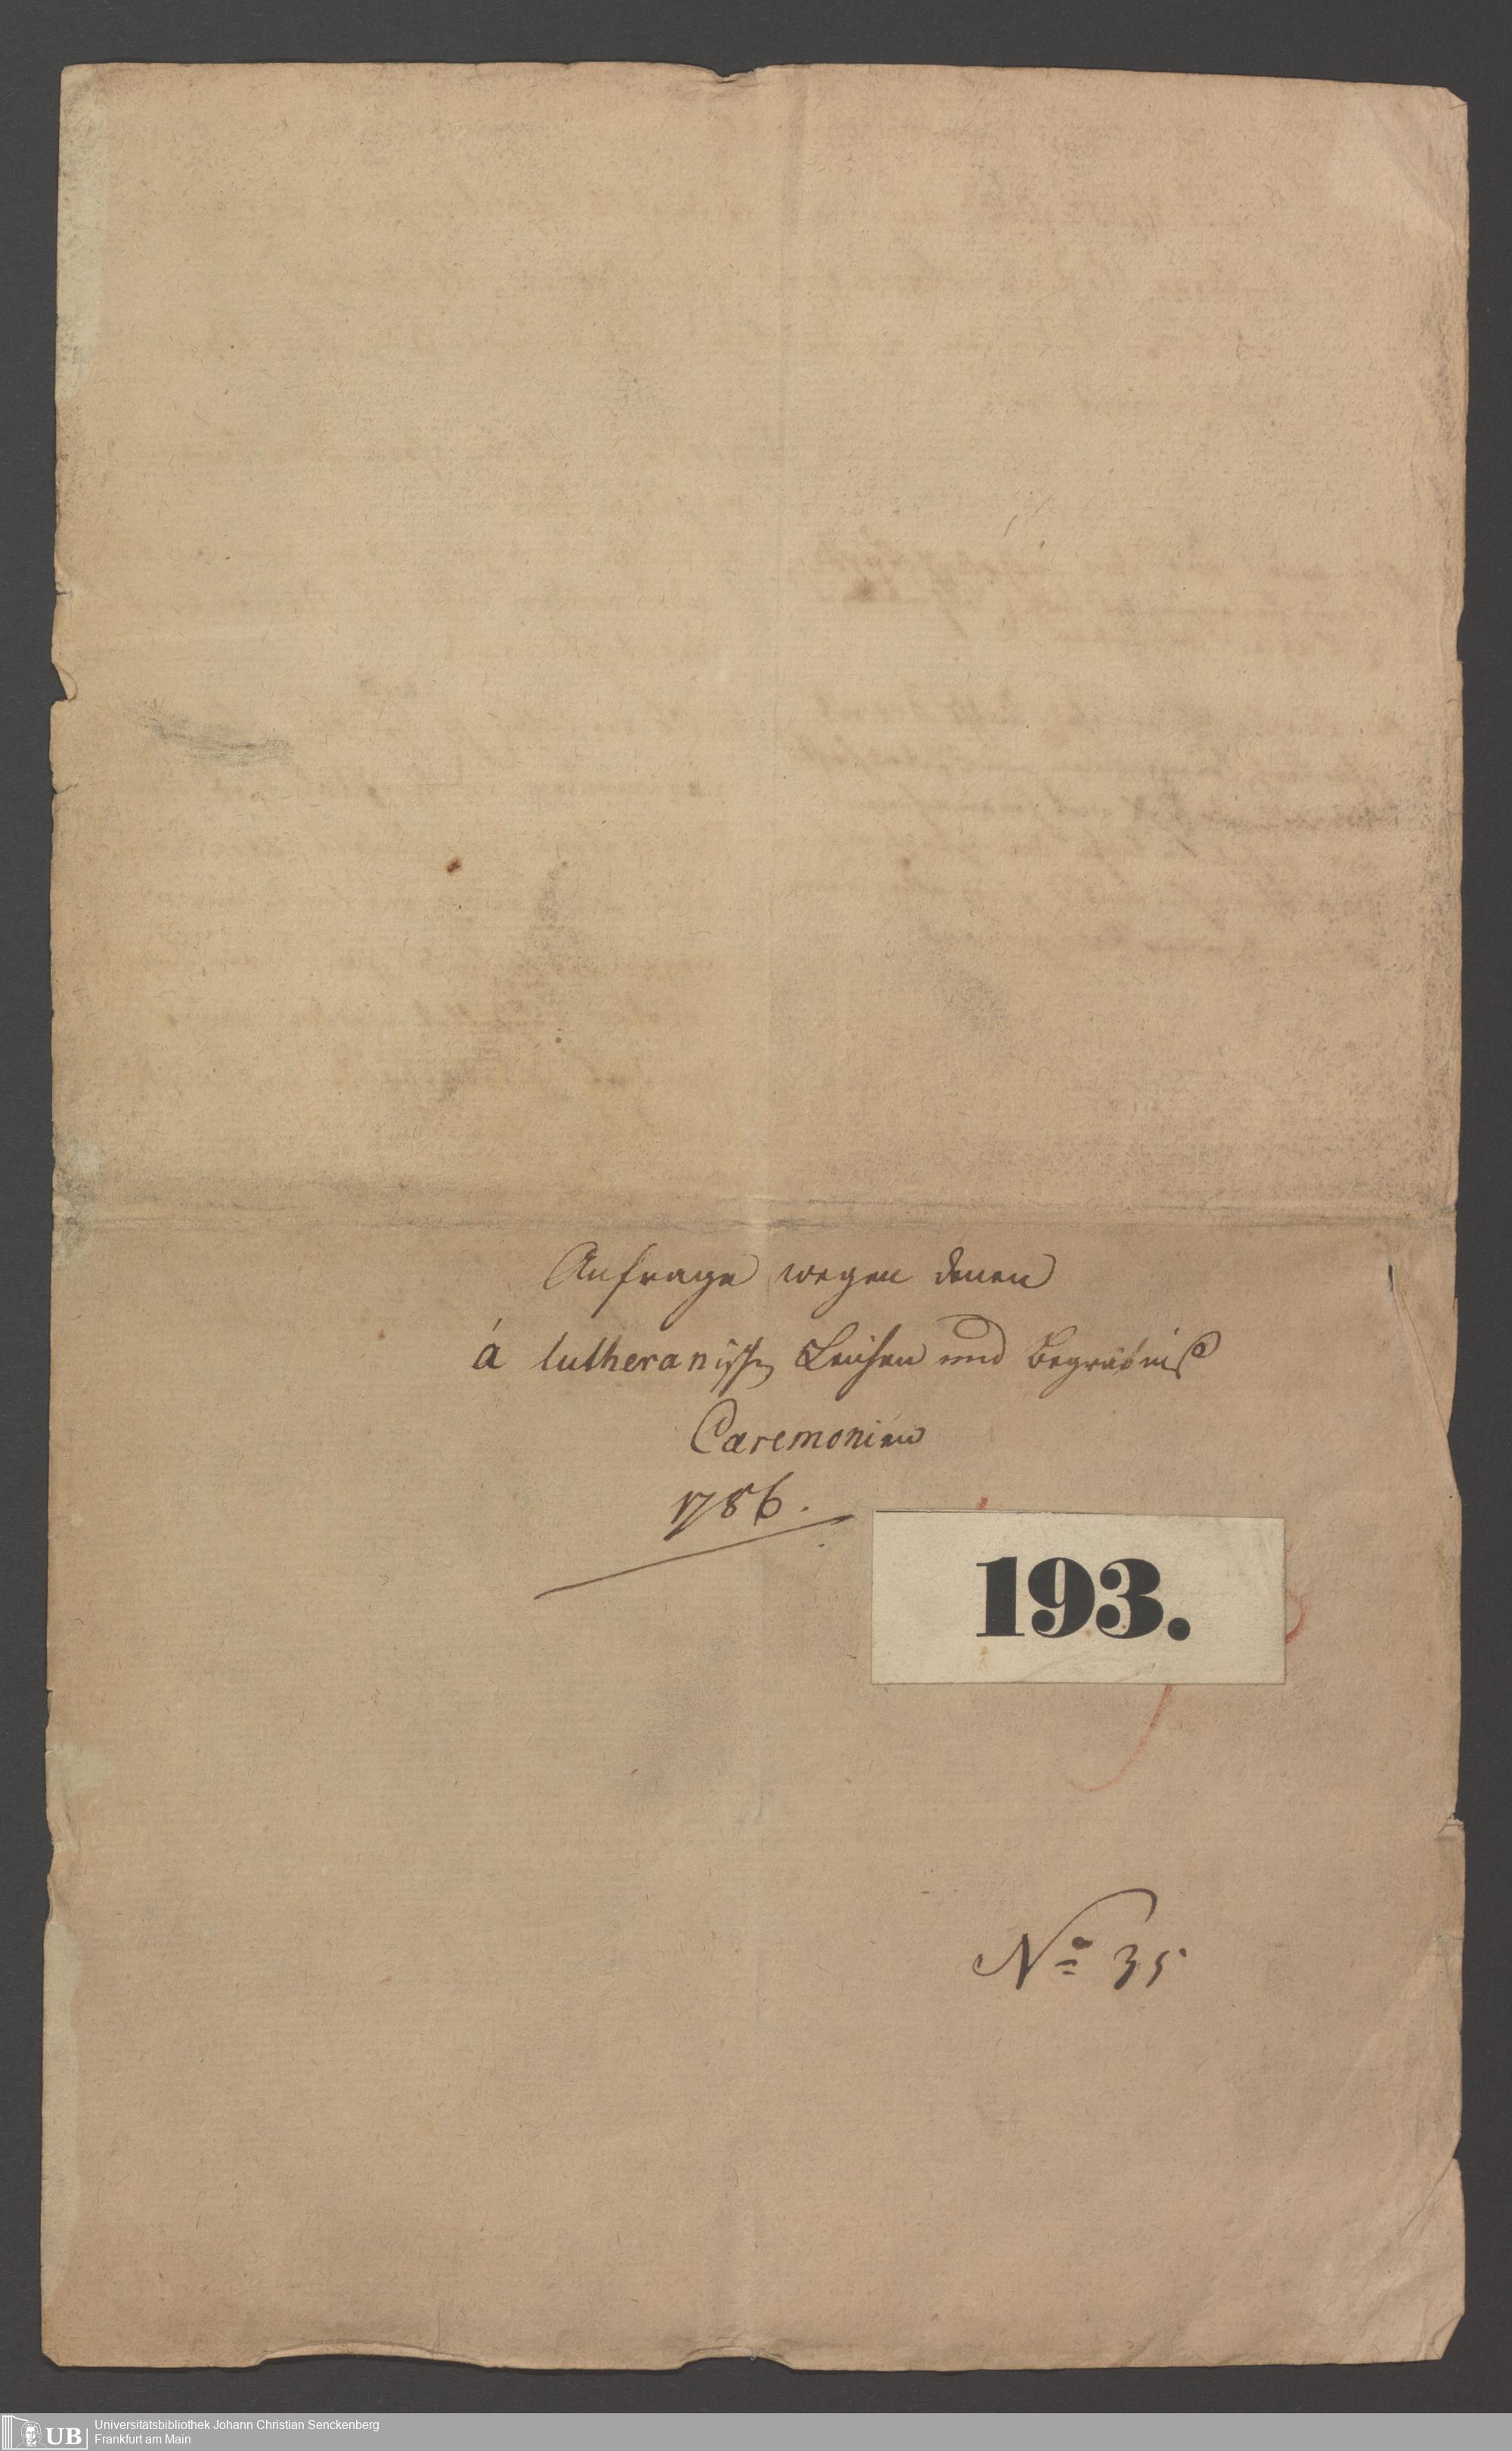 Anfrage wegen denen
á lutheranischen Leichen und Begräbniß
Caeremonien
1786.
193.
No 35
UB
Universitätsbibliothek Johann Christian Senckenberg
Frankfurt am Main